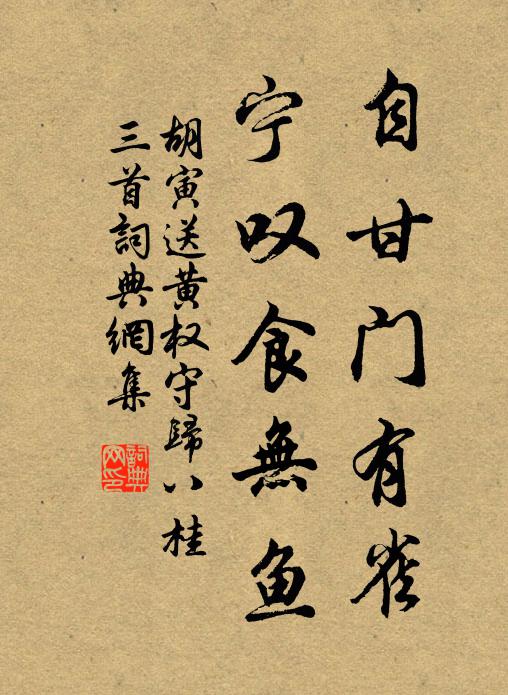 自甘门有雀
宁叹食無鱼
胡寅送黄权守歸八桂
三首詞典網集
詞典网印